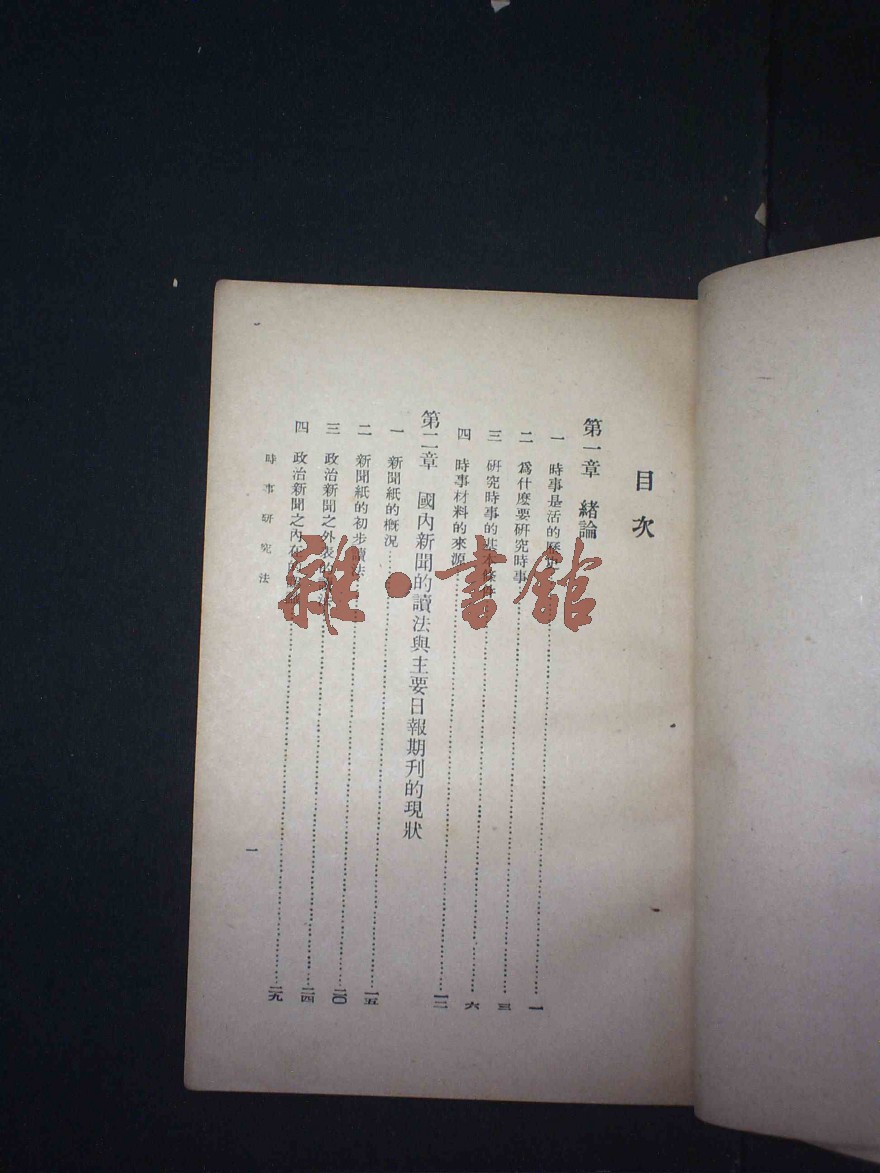 目次
第一章 緒論
一 時事是活的歷史……一
二 爲什麽要研究時事……三
三 研究時事的基本條件……六
四 時事材料的來源……一二
第二章 國內新聞的讀法與主要日報期刊的現狀
一 新聞紙的概況……一五
二 新聞紙的初步讀法……二〇
三 政治新聞之外表的……二四
四 政治新聞之內在……二九
時事研究法
一
雜·書館